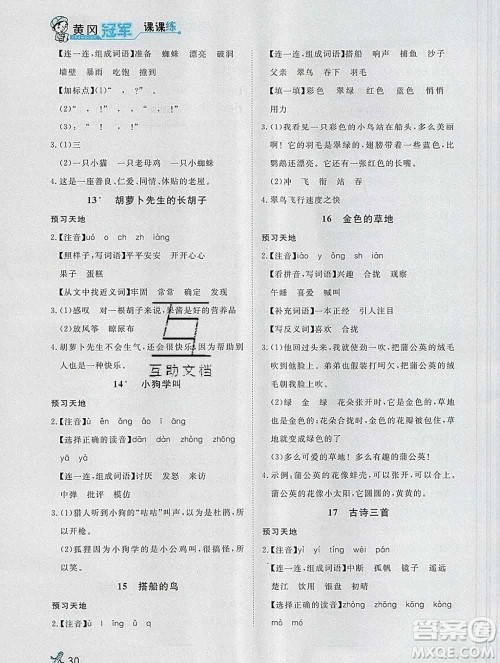 黄冈冠军 课课练
【连一连,组成词语】准备 蜘蛛 漂亮 破洞
墙壁 暴雨 吃饱 撞到
【加标点】(1)“ , !”
(2)“ , !”
3.(1)三
(2)一只小猫 一只老母鸡 一只小蜘蛛
4.这是一座善良、仁爱、同情、体贴的老屋。
13* 胡萝卜先生的长胡子
预习天地
2.【注音】uó o ch zh iàng
【照样子,写词语】平平安安 开开心心
果子 蛋糕
【从文中找近义词】牢固 常常 确定 发现
3.(1)感叹 对一根胡子来说,果酱是好的营养品
(2)放风筝 晾尿布
4.胡萝卜先生不会生气,还会很快乐,因为帮助别
人也是一种快乐。
14* 小狗学叫
预习天地
2.【注音】ù ě ǎng āo ǔ
【选择正确的读音】yā hōng dà fā
【连一连,组成词语】讨厌 发怒 访问
中弹 批评 模仿
3.(1)猎人听到小狗的“咕咕”叫声,以为附近有
杜鹃。
(2)狐狸模仿小狗学的小公鸡叫,很搞笑。
15 搭船的鸟
预习天地
2.【注音】ù l īng ǔ q
【连一连,组成词语】搭船 响声 捕鱼 沙沙
父亲 翠鸟 鹦鹉 羽毛
【填一填】彩色 翠绿 红色 蓝色 美丽
悄悄 静悄悄
3.(1)我看见一只彩色的小鸟站在船头,多么美丽
啊!它的羽毛是翠绿的,翅膀带着一些蓝色,比
鹦鹉还漂亮。它还有一张红色的长嘴。
(2)冲 飞 衔 站 吞
4.翠鸟飞行速度之快
16 金色的草地
预习天地
2.【注音】iào y ǒng sh ǎ
【看拼音,写词语】兴趣 合拢 盛开 观察
午睡 喜爱 喊叫
【补充词语】一本正经 引人注目
【写反义词】兴趣 合拢 有趣
3.(1)我们互相往对方脸上吹,把蒲公英的绒毛吹
得到处都是。
(2)绿 金 绿 金 绿 花朵张开时,花瓣是金
色的,草地也是金色的;花朵合拢时,金色的花瓣
被包住,草地就变成绿色的了。
(3)多么可爱的草地!多么有趣的蒲公英!
4.示例:蒲公英的花像蚌壳,也会“张开”“合上”。
蒲公英的花就像小太阳,它圆圆的,黄黄的。
17 古诗三首
预习天地
2.【注音】yì yí tíng wèi chǔ
【连一连,组成词语】中断 孤帆 镜子 遥望
楚江 饮用 庭院 相磨
【选择正确的读音】xiāng jìn hǎo mó
30